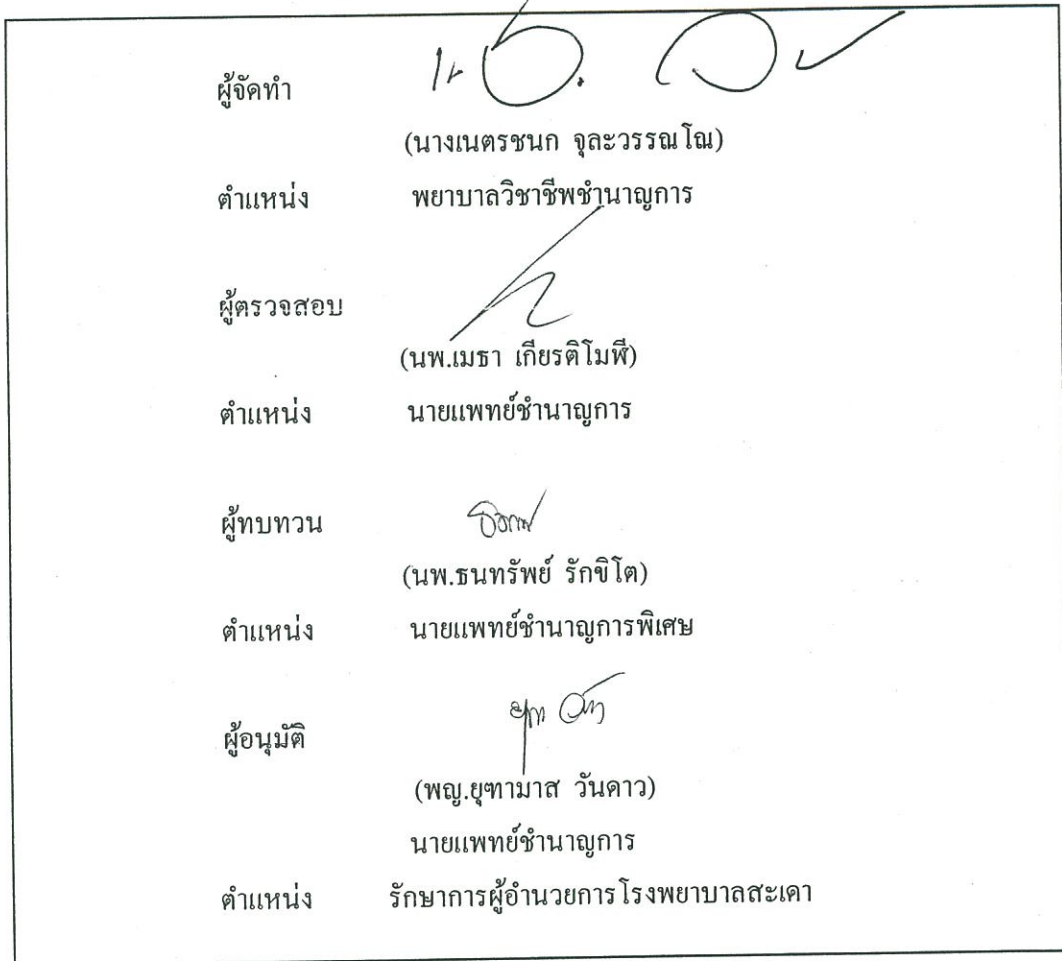 ผู้จัดทำ
(นางเนตรชนก จุละวรรณโณ)
ตำแหน่ง พยาบาลวิชาชีพชำนาญการ
ผู้ตรวจสอบ
(นพ.เมธา เกียรติโมฬี)
ตำแหน่ง นายแพทย์ชำนาญการ
ผู้ทบทวน
(นพ.ธนทรัพย์ รักขิโต)
ตำแหน่ง นายแพทย์ชำนาญการพิเศษ
ผู้อนุมัติ
(พญ.ยุฑามาส วันดาว)
นายแพทย์ชำนาญการ
ตำแหน่ง รักษาการผู้อำนวยการโรงพยาบาลสะเดา